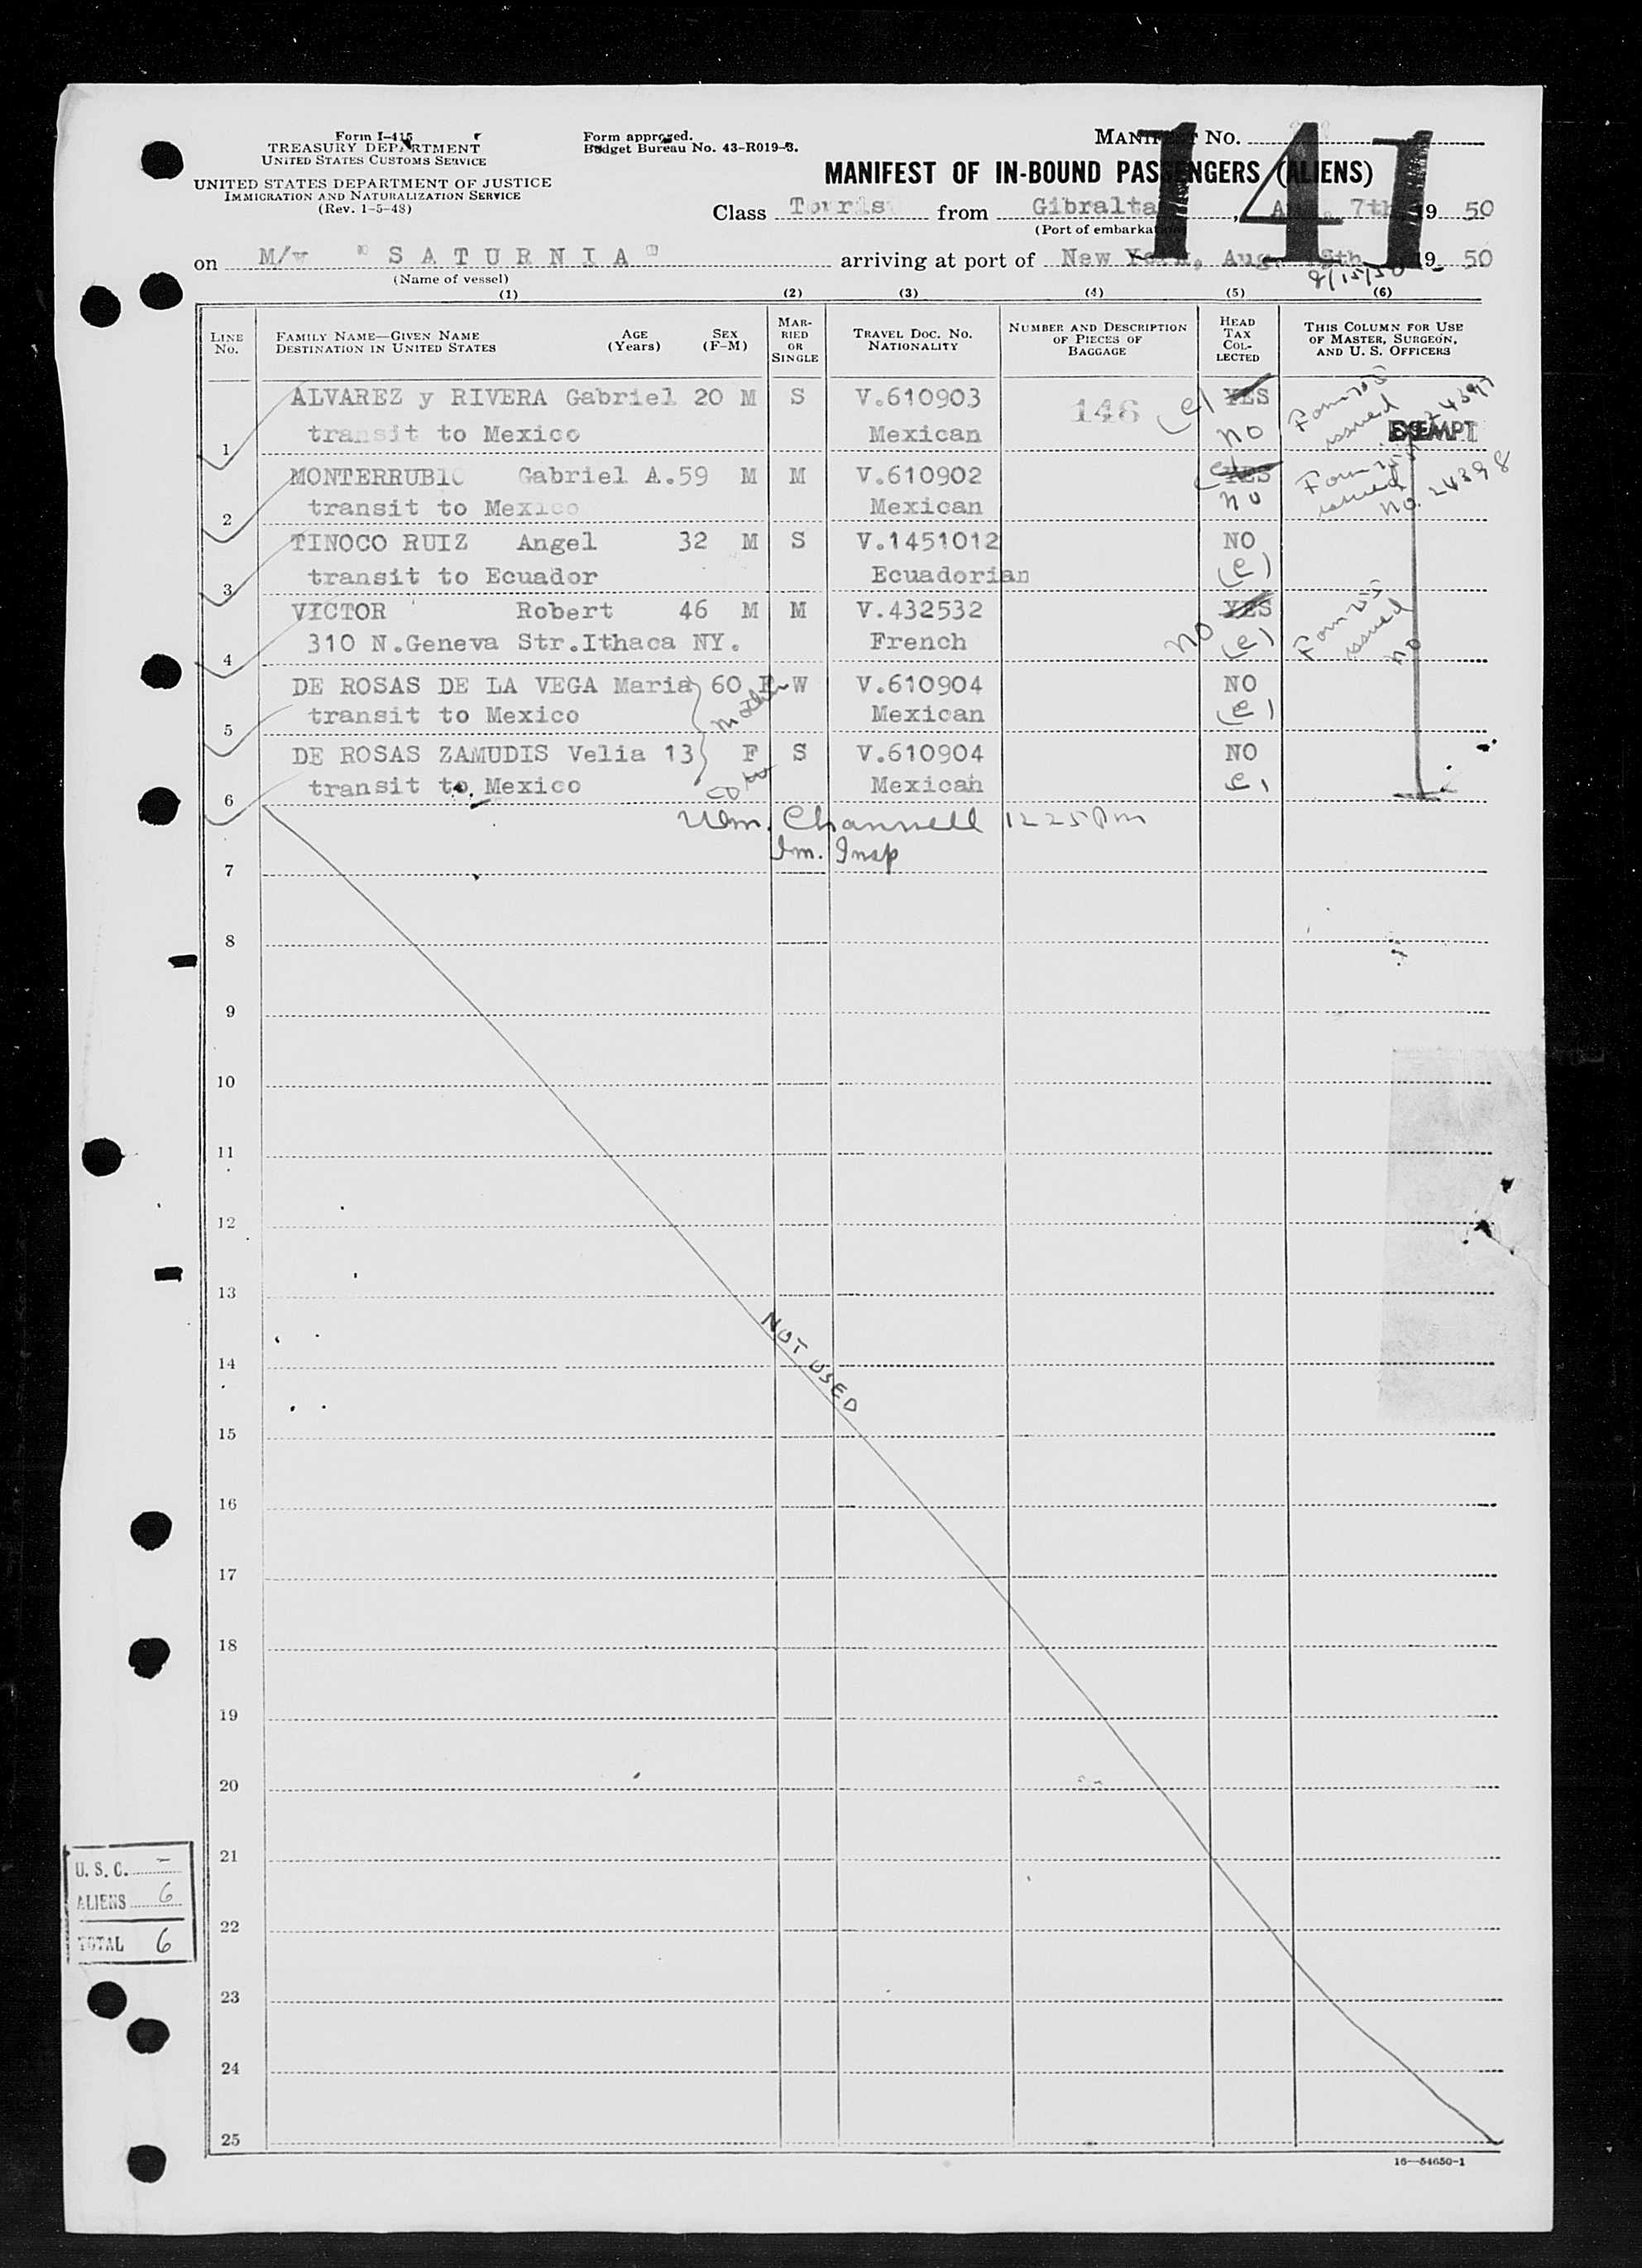 Form I-415
TREASURY DEPARTMENT
UNITED STATES CUSTOMS SERVICE
UNITED STATES DEPARTMENT OF JUSTICE
IMMIGRATION AND NATURALIZATION SERVICE
(Rev. 1-5-48)
Form approved.
Budget Bureau No. 43-R019-3.
MANIFEST NO.
141
MANIFEST OF IN-BOUND PASSENGERS (ALIENS)
Class Tourist from Gibraltar, Aug. 7th, 19 50
(Port of embarkation)
on M/v "SATURNIA" arriving at port of New York, Aug. 15th 19 50
(Name of vessel)
8/15/50
(1) (2) (3) (4) (5) (6)
LINE No.
FAMILY NAME—GIVEN NAME
DESTINATION IN UNITED STATES
AGE (Years)
SEX (F-M)
MARRIED OR SINGLE
TRAVEL DOC. NO.
NATIONALITY
NUMBER AND DESCRIPTION OF PIECES OF BAGGAGE
HEAD TAX COLLECTED
THIS COLUMN FOR USE OF MASTER, SURGEON, AND U. S. OFFICERS
ALVAREZ y RIVERA Gabriel 20 M S V.610903 146 (e) YES Form issued 24397
1 transit to Mexico Mexican no EXEMPT
MONTERRUBIO Gabriel A. 59 M M V.610902 (e) YES Form issued
2 transit to Mexico Mexican no No. 24398
TINOCO RUIZ Angel 32 M S V.1451012 NO
3 transit to Ecuador Ecuadorian (e)
VICTOR Robert 46 M M V.432532 YES Form issued
4 310 N.Geneva Str.Ithaca NY. French no (e) no
DE ROSAS DE LA VEGA Maria 60 F W V.610904 NO
5 transit to Mexico mother Mexican (e)
DE ROSAS ZAMUDIS Velia 13 F S V.610904 NO
6 transit to Mexico Mexican e,
Wm. Channell 12 25 Pm
Im. Insp
7
8
9
10
11
12
13
NOT USED
14
15
16
17
18
19
20
21
22
23
24
25
U. S. C. –
ALIENS 6
TOTAL 6
16—54650-1